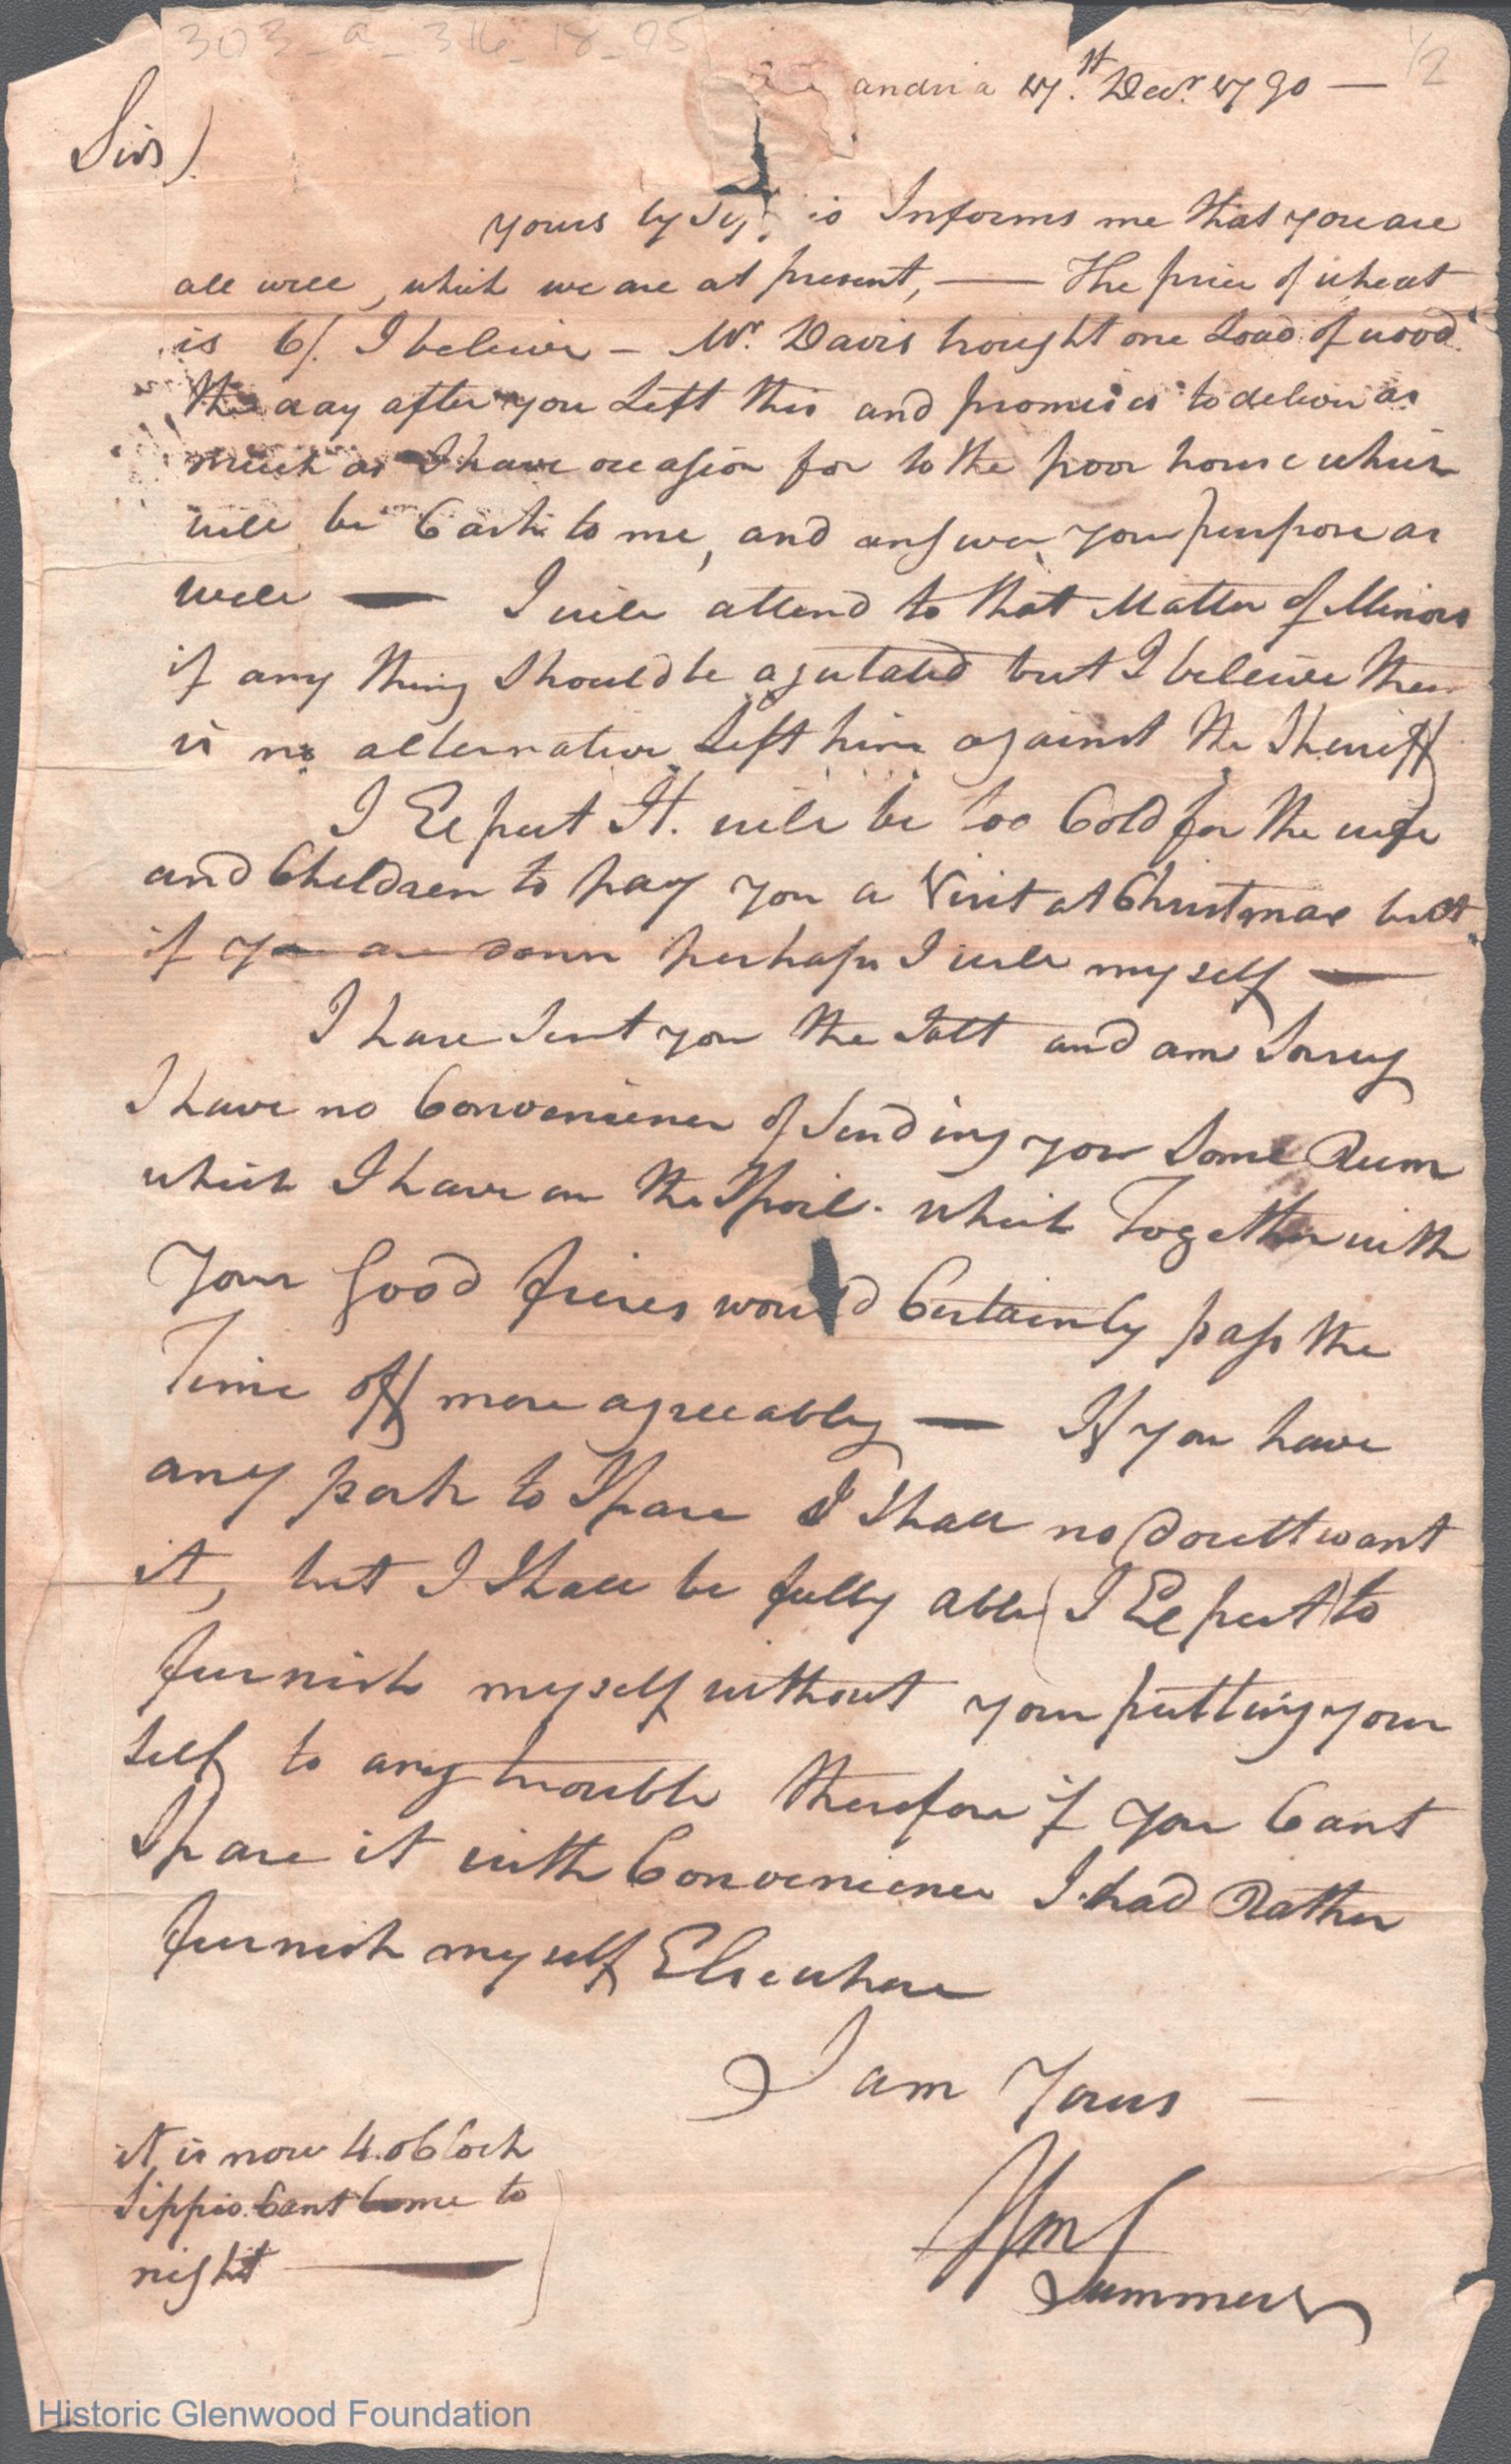 303_a_316_18_95
1/2
andria 17.st Decr. 1790 —
Sir)
yours by is Informs me that you are
all well, which we are at present, — The price of wheat
is 6/. I believe — Mr. Davis bought one Load of wood
the day after you Left this and promises to deliver as
much as I have occasion for to the poor house which
will be Cash to me, and answer your purpose as
well — I will attend to that Matter of Minors
if any thing Should be agutated but I beleive there
is no alternative Left him against the Sheriff
I Expect It. will be too Cold for the wife
and Children to pay you a Visit at Christmas but
if you are down perhaps I will myself —
I have Sent you the Salt and am Sorry
I have no Convenience of Sending you Some Rum
which I have on the Spoil. which Together with
Your Good fires would Certainly pass the
Time off more agreeably — If you have
any pork to Spare I Shall no doubt want
it, but I Shall be fully able (I Expect) to
furnish myself without your putting your
self to any trouble therefore if you Cant
Spare it with Convenience I had Rather
furnish myself Elsewhere
I am Yours —
it is now 4. oClock
Sippio Cant Come to
night —
Wm
Summers
Historic Glenwood Foundation